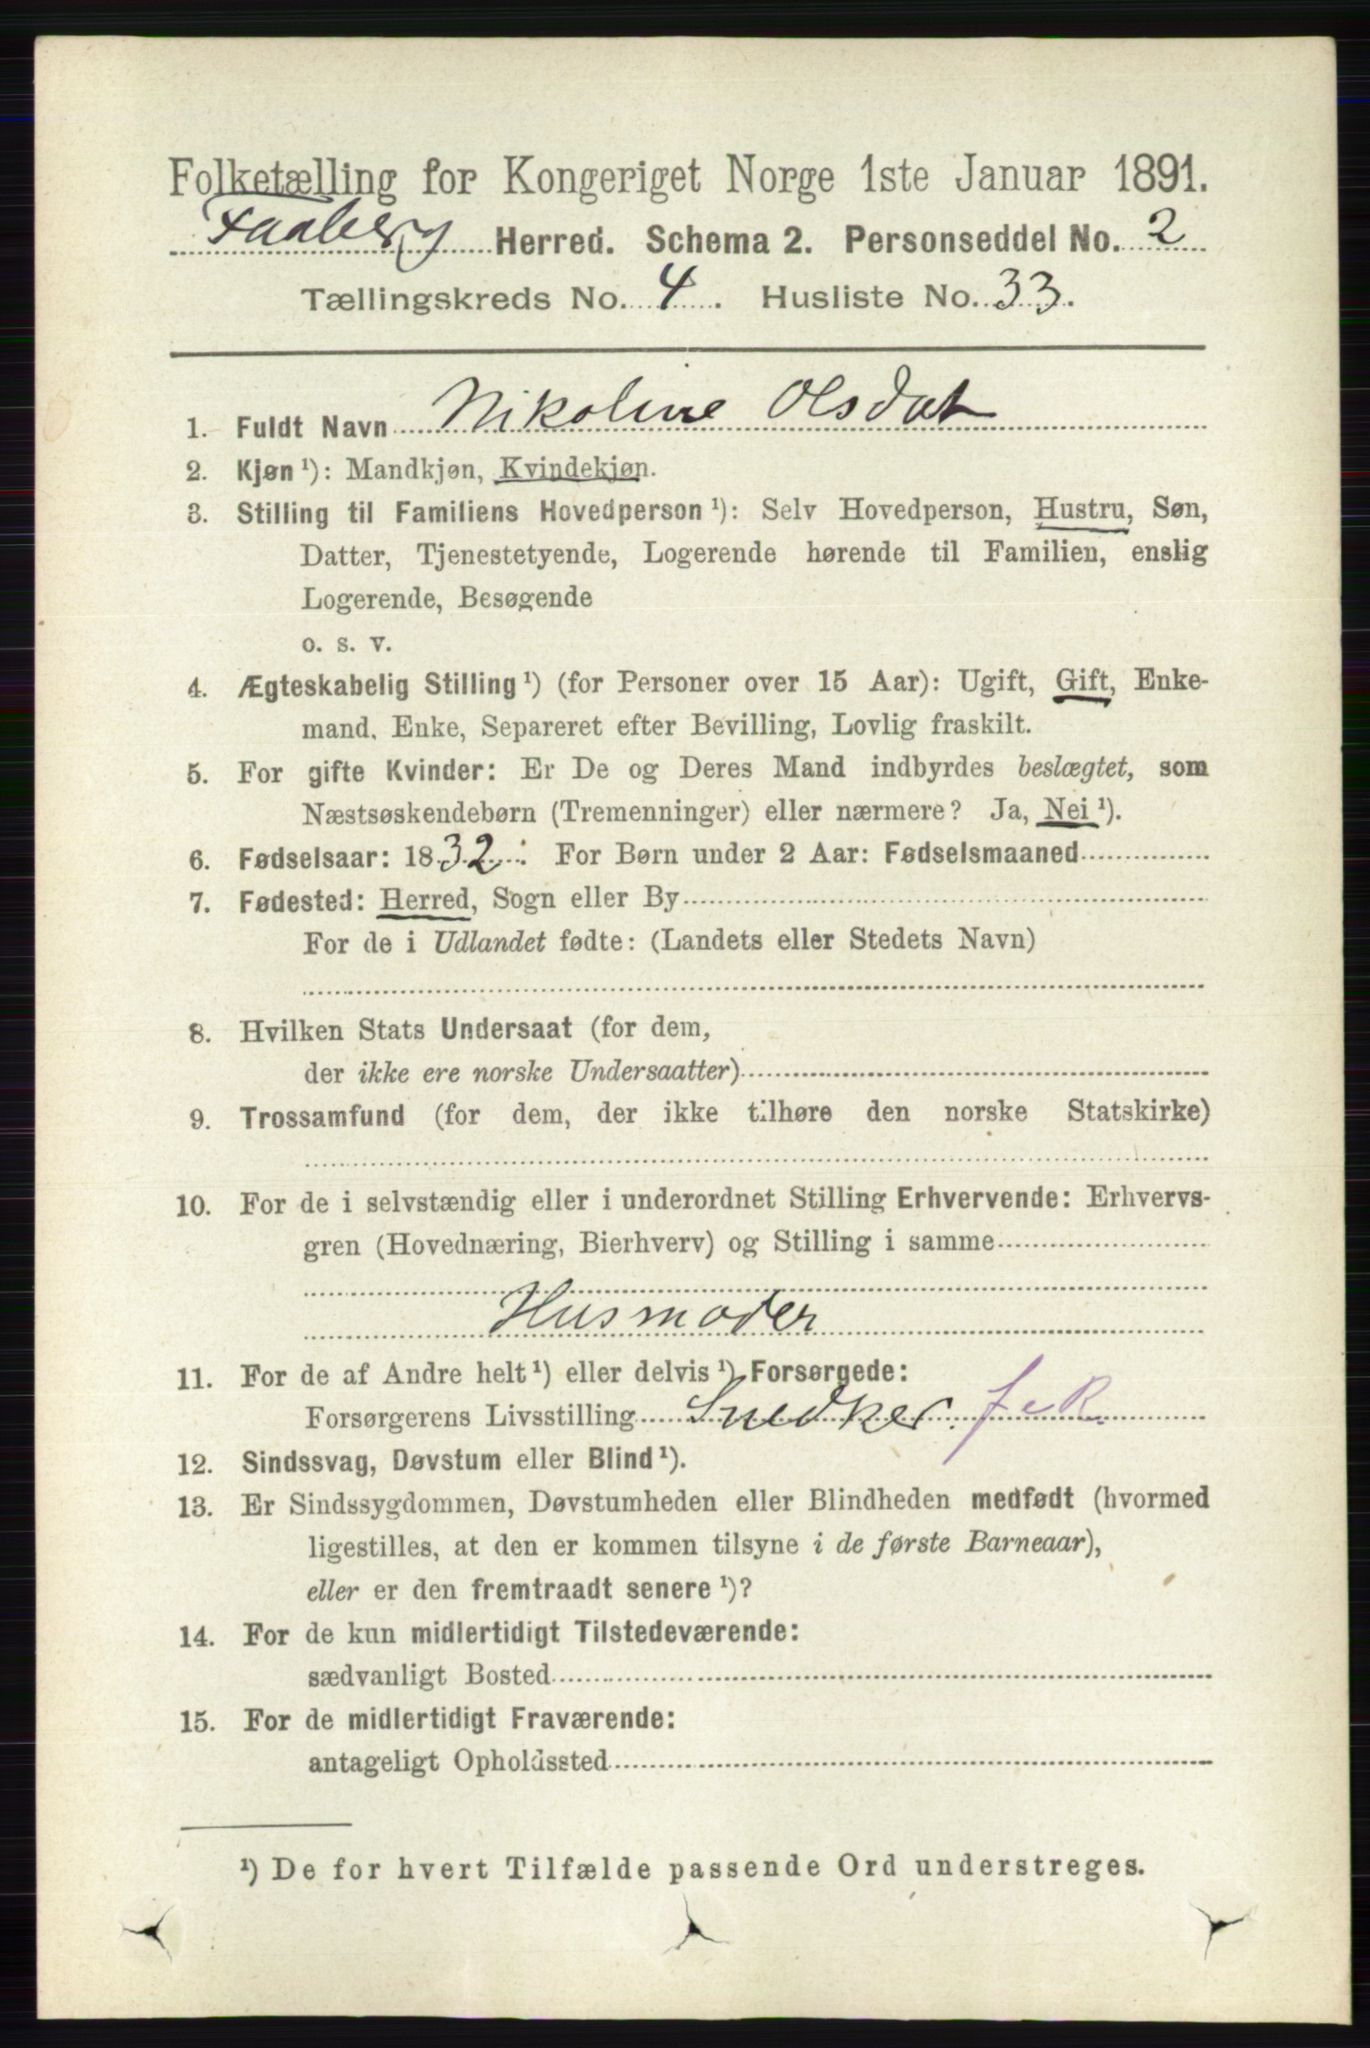 Folketælling for Kongeriget Norge 1ste Januar 1891.
Faaberg Herred. Schema 2. Personseddel No. 2
Tællingskreds No. 4. Husliste No. 33.
1. Fuldt Navn Nikoline Olsdat
2. Kjøn ¹): Mandkjøn, Kvindekjøn.
3. Stilling til Familiens Hovedperson ¹): Selv Hovedperson, Hustru, Søn,
Datter, Tjenestetyende, Logerende hørende til Familien, enslig
Logerende, Besøgende
o. s. v.
4. Ægteskabelig Stilling ¹) (for Personer over 15 Aar): Ugift, Gift, Enke-
mand, Enke, Separeret efter Bevilling, Lovlig fraskilt.
5. For gifte Kvinder: Er De og Deres Mand indbyrdes beslægtet, som
Næstsøskendebørn (Tremenninger) eller nærmere? Ja, Nei ¹).
6. Fødselsaar: 1832. For Børn under 2 Aar: Fødselsmaaned
7. Fødested: Herred, Sogn eller By
For de i Udlandet fødte: (Landets eller Stedets Navn)
8. Hvilken Stats Undersaat (for dem,
der ikke ere norske Undersaatter)
9. Trossamfund (for dem, der ikke tilhøre den norske Statskirke)
10. For de i selvstændig eller i underordnet Stilling Erhvervende: Erhvervs-
gren (Hovednæring, Bierhverv) og Stilling i samme
Husmoder
11. For de af Andre helt ¹) eller delvis ¹) Forsørgede:
Forsørgerens Livsstilling Snedker.
12. Sindssvag, Døvstum eller Blind ¹).
13. Er Sindssygdommen, Døvstumheden eller Blindheden medfødt (hvormed
ligestilles, at den er kommen tilsyne i de første Barneaar),
eller er den fremtraadt senere ¹)?
14. For de kun midlertidigt Tilstedeværende:
sædvanligt Bosted
15. For de midlertidigt Fraværende:
antageligt Opholdssted
¹) De for hvert Tilfælde passende Ord understreges.